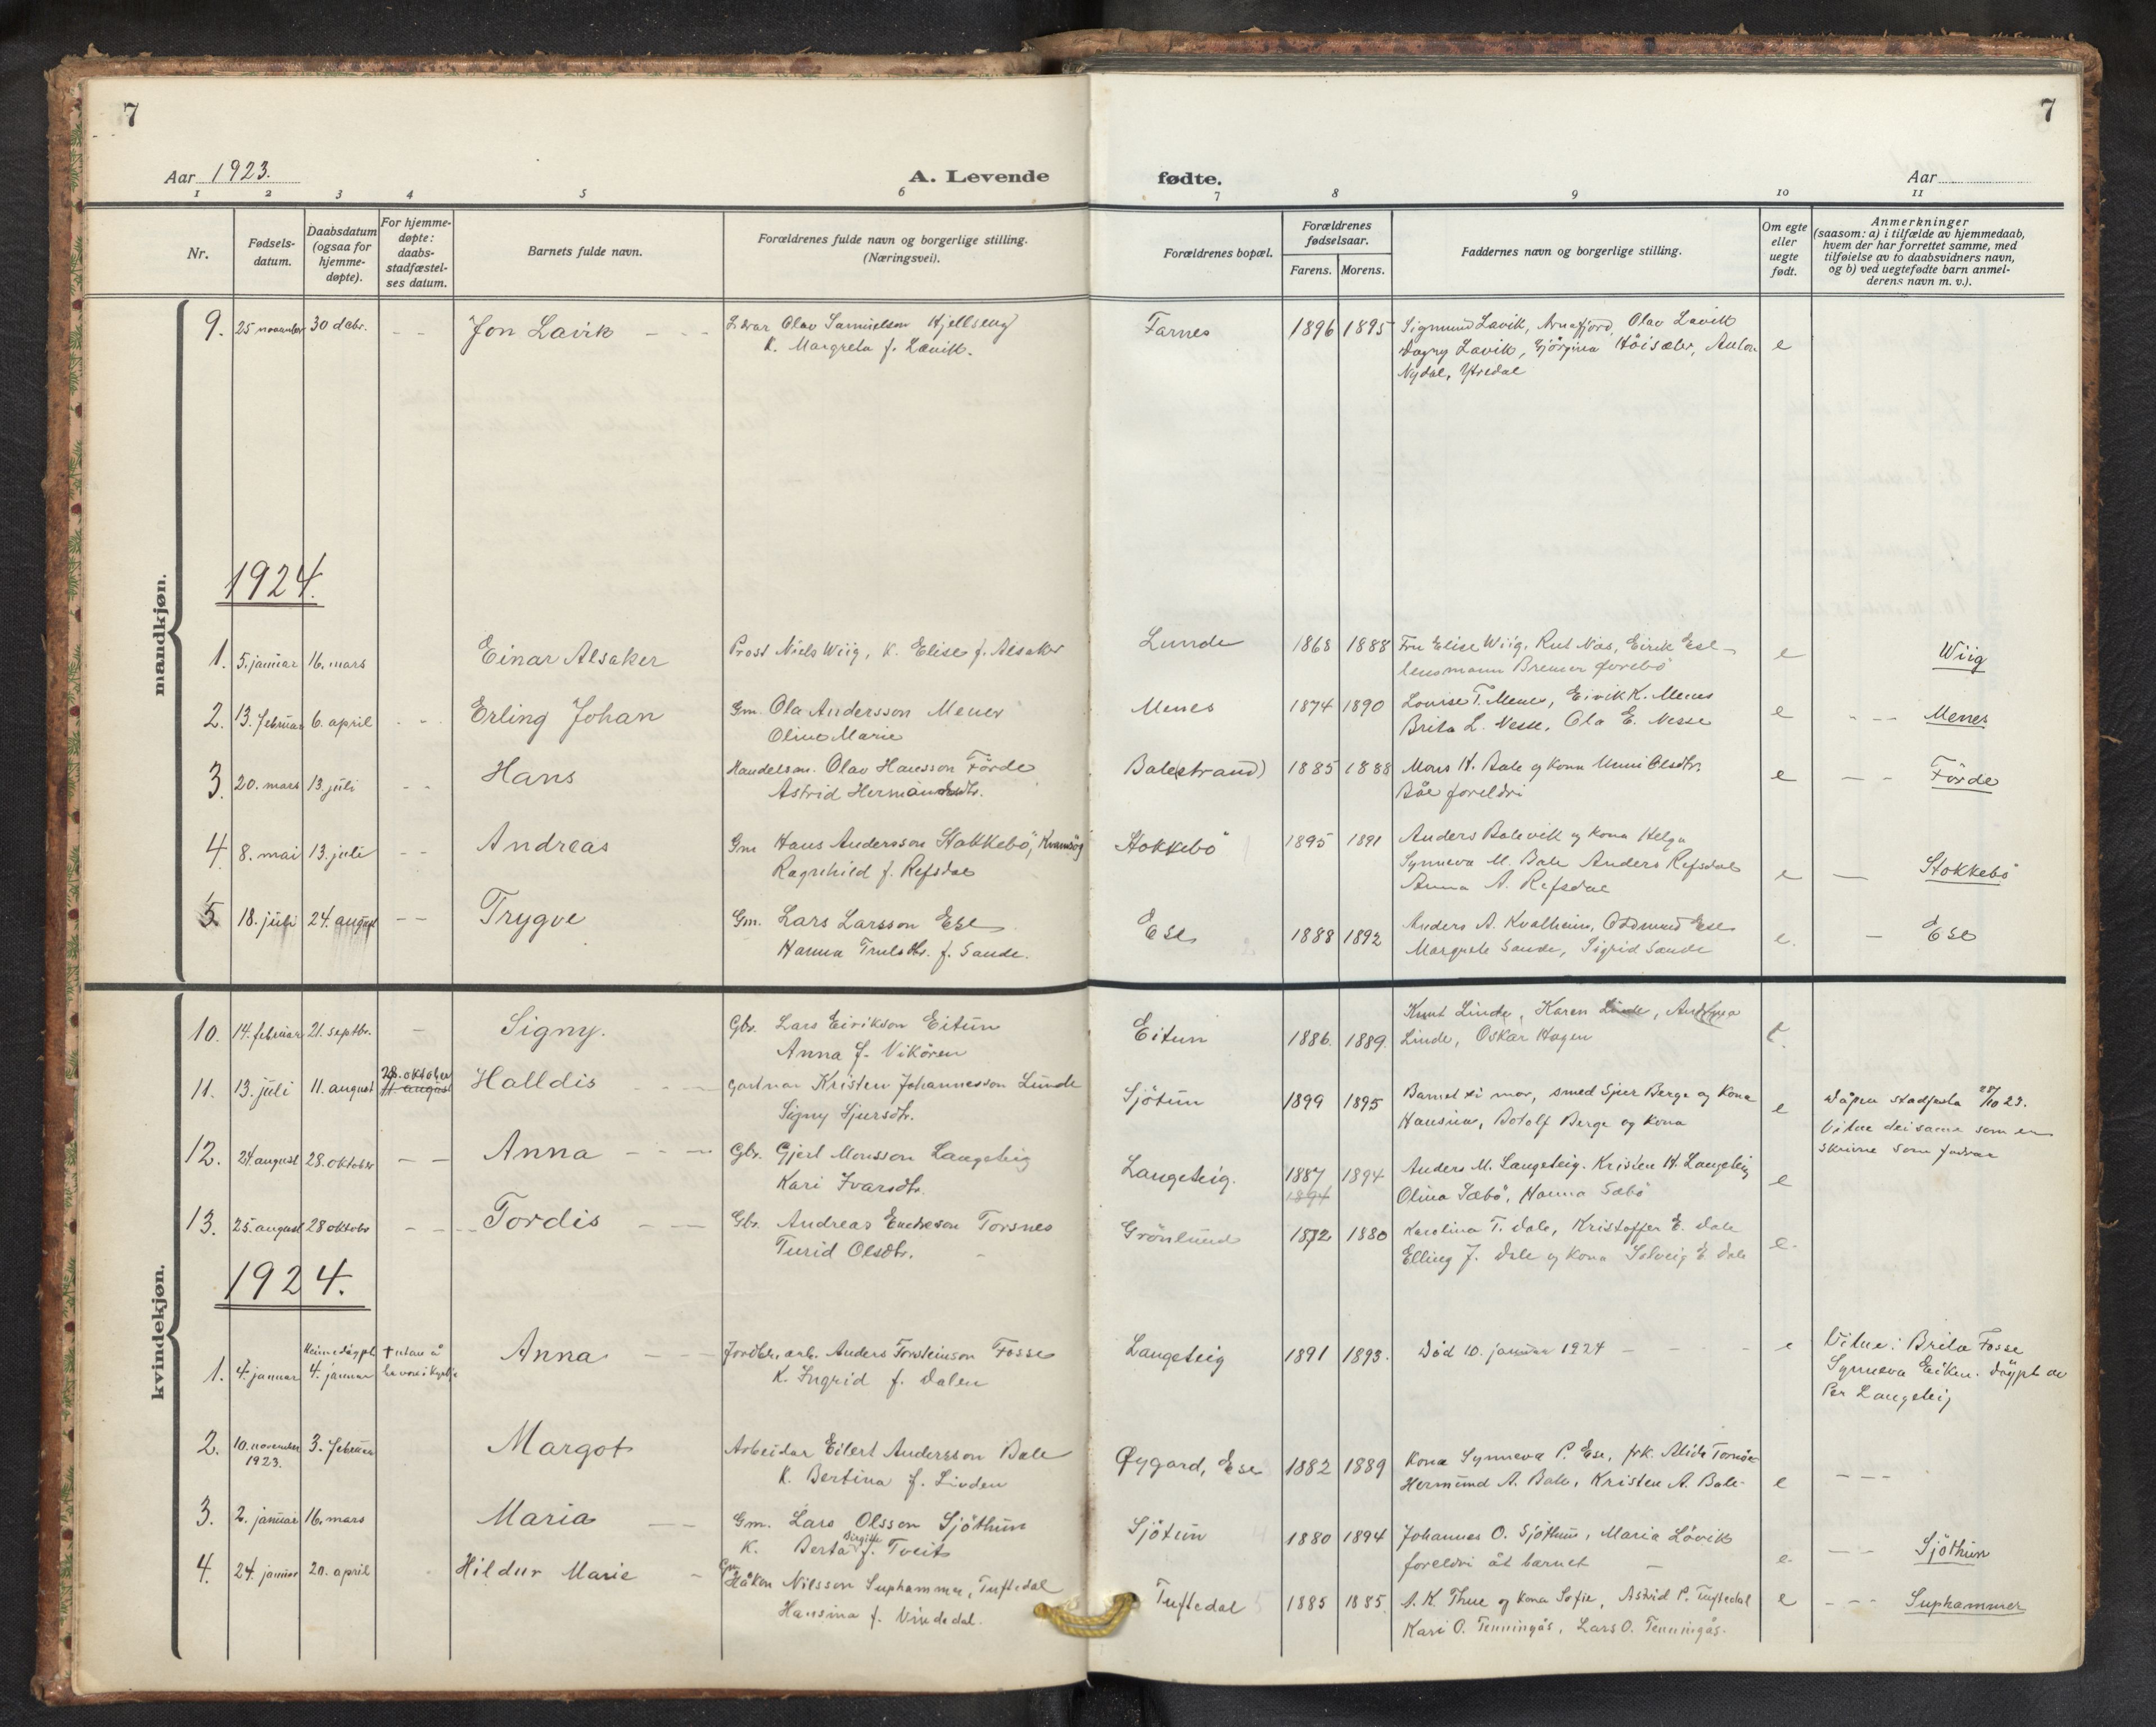 7
7
Aar 1923.
A. Levende
fødte.
Aar
1 2 3 4 5 6 7 8 9 10 11
Nr.
Fødsels-
datum.
Daabsdatum
(ogsaa for
hjemme-
døpte).
For hjemme-
døpte:
daabs-
stadfæstel-
ses datum.
Barnets fulde navn.
Forældrenes fulde navn og borgerlige stilling.
(Næringsvei).
Forældrenes bopæl.
Forældrenes
fødselsaar.
Farens. Morens.
Faddernes navn og borgerlige stilling.
Om egte
eller
uegte
født.
Anmerkninger
(saasom: a) i tilfælde av hjemmedaab,
hvem der har forrettet samme, med
tilføielse av to daabsvidners navn,
og b) ved uegtefødte barn anmel-
derens navn m. v.).
mandkjøn.
9. 25 november 30 dcbr. - - Jon Lavik - - - Olav Samuelson Hjellseng Farnes 1896 1895 Sigmund Lavik, Arnafjord, Olav Lavik
K. Margreta f. Lavik. Dagny Lavik, Gjörgina Höisæter, Anton e
Nydal, Ytredal
1924.
1. 5. januar 16. mars Einar Alsaker Prost Niels Wiig, K. Elise f. Alsaker Lunde 1868 1888 Fru Elise Wiig, Rut Nes, Eirik Ese e Wiig
lensmann Bremer forebö
2. 13. februar 6. april - - Erling Johan Gm. Ola Andersson Menes Menes 1874 1890 Louise T. Menes, Eivik K. Menes e - - - Menes
Oline Marie Brita L. Nesse, Ola E. Nesse
3. 20. mars 13. juli - - Hans Handelsm. Olav Hansson Förde Bale(strand) 1885 1888 Mons H. Bale og kona Unni Olsdtr. e - - Förde
Astrid Hermansdtr. Båe foreldri
4. 8. mai 13. juli - - Andreas Gm Hans Andersson Stokkebö, Kvamsøy Stokkebö 1895 1891 Anders Balevik og kona Helga
Ragnhild f. Refsdal Synneva M. Bale Anders Refsdal e - Stokkebö
Anna A. Refsdal
5. 18. juli 24. august - - Trygve Gm. Lars Larsson Ese Ese 1888 1892 Anders A. Kvalheim, Oddmund Ese e. - Ese
Hanna Trulsdtr. f. Sande. Margrete Sande, Sigrid Sande
kvindekjøn.
10. 14. februar 21. septbr. - Signy. Gbr. Lars Eirikson Eitun Eitun 1886. 1889. Knut Linde, Karen Linde,
Anna f. Vikören Linde, Oskar Hagen
11. 13. juli 11. august 28. oktober 11. august Halldis - - - Gartnar Kristen Johannesson Lunde Sjötun 1899 1895 Barnet si mor, smed Sjur Berge og kona e Dåpen stadfesta 28/10 23.
Signy Sjursdtr. Hansina, Botolf Berge og kona Vitne dei same som er
skrivne som fadrar
12. 24. august 28. oktober - - Anna - - - Gbr. Gjert Monsson Langeteig Langeteig. 1887 1894 Anders M. Langeteig. Kristen H. Langeteig e
Kari Ivarsdtr. 1894 Olina Sæbö, Hanna Sæbö
13. 25. august 28 oktobr - - - Tordis - - - Gbr. Andreas Endreson Torsnes Grönlund 1872 1880 Karolina T. Dale, Kristoffer E. Dale e.
Turid Olsdtr. Elling J. Dale og kona Solveig E. Dale
1924.
1. 4. januar Heimedöypt 4. januar + utan å ha vore i kyrkje Anna - - - Jordbr. arb. Anders Torsteinson Fosse Langeteig 1891 1893. Död 10. januar 1924 - - - e Vitne: Brita Fosse
K. Ingrid f. Dalen Synneva Eiken. Döypt av
Per Langeteig
2. 10. november 1923. 3. februar Margot Arbeidar Eilert Andersson Bale Øygard, Ese 1882 1889 Kona Synneva P. Ese, frk. Alida Tornöe
K. Bertina f. Linden Hermund A. Bale, Kristen A. Bale - e - - -
3. 2. januar 16. mars Maria - - Gm. Lars Olsson Sjöthun Sjötun 1880 1894 Johannes O. Sjöthun, Maria Lövik
K. Berta Birgitte f. Tveit foreldri åt barnet - e. - - Sjöthun
4. 24. januar 20. april Hildur Marie - Gm. Håkon Nilsson Suphammer, Tuftedal Tuftedal 1885 1885. A. K. Thue og kona Sofie, Astrid P. Tuftedal e - - - Suphammer
Hansina f. Vindedal. Kari O. Tenningås, Lars O. Tenningås.